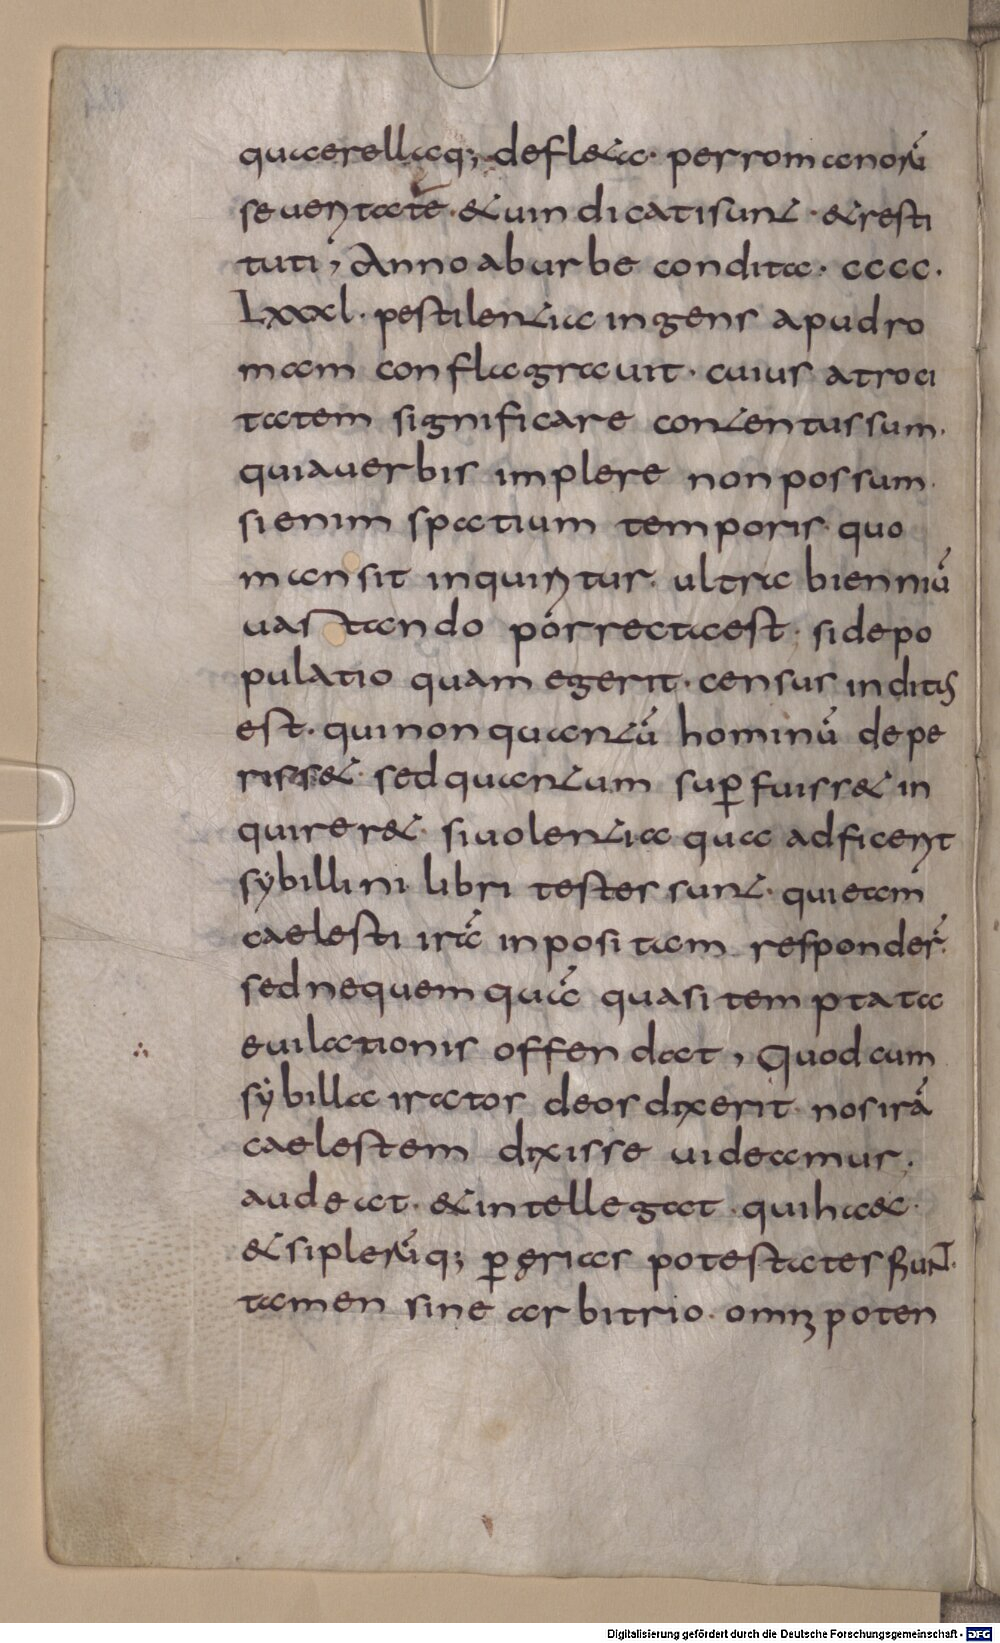 quaerellaq; defleta· per romanorũ
seueritatẽ· & uindicati sunt· & resti
tuti; Anno ab urbe condita· cccc·
Lxxxl· pestilentia ingens apud ro
mam conflagrauit· cuius atroci
tatem significare contentus sum·
quia uerbis implere non possum·
si enim spatium temporis quo
mansit inquiritur· ultra bienniũ
uastando porrecta est· si depo
pulatio quam egerit· census inditis
est· qui non quantũ hominũ depe
risset· sed quantum suꝑfuisset in
quireret· si uolentia qua adficerit
sybillini libri testes sunt· qui eam
caelesti irã inpositam responder̃·
sed nequem quã quasi temptata
euilationis offendat, Quod cum
sybilla irator deos dixerit· nos irã
caelestem dixisse uideamus·
audeat· & intellegat· qui haec·
& si plerũq; ꝑ ęrias potestates fiunt·
tamen sine arbitrio· omnipoten
Digitalisierung gefördert durch die Deutsche Forschungsgemeinschaft - DFG